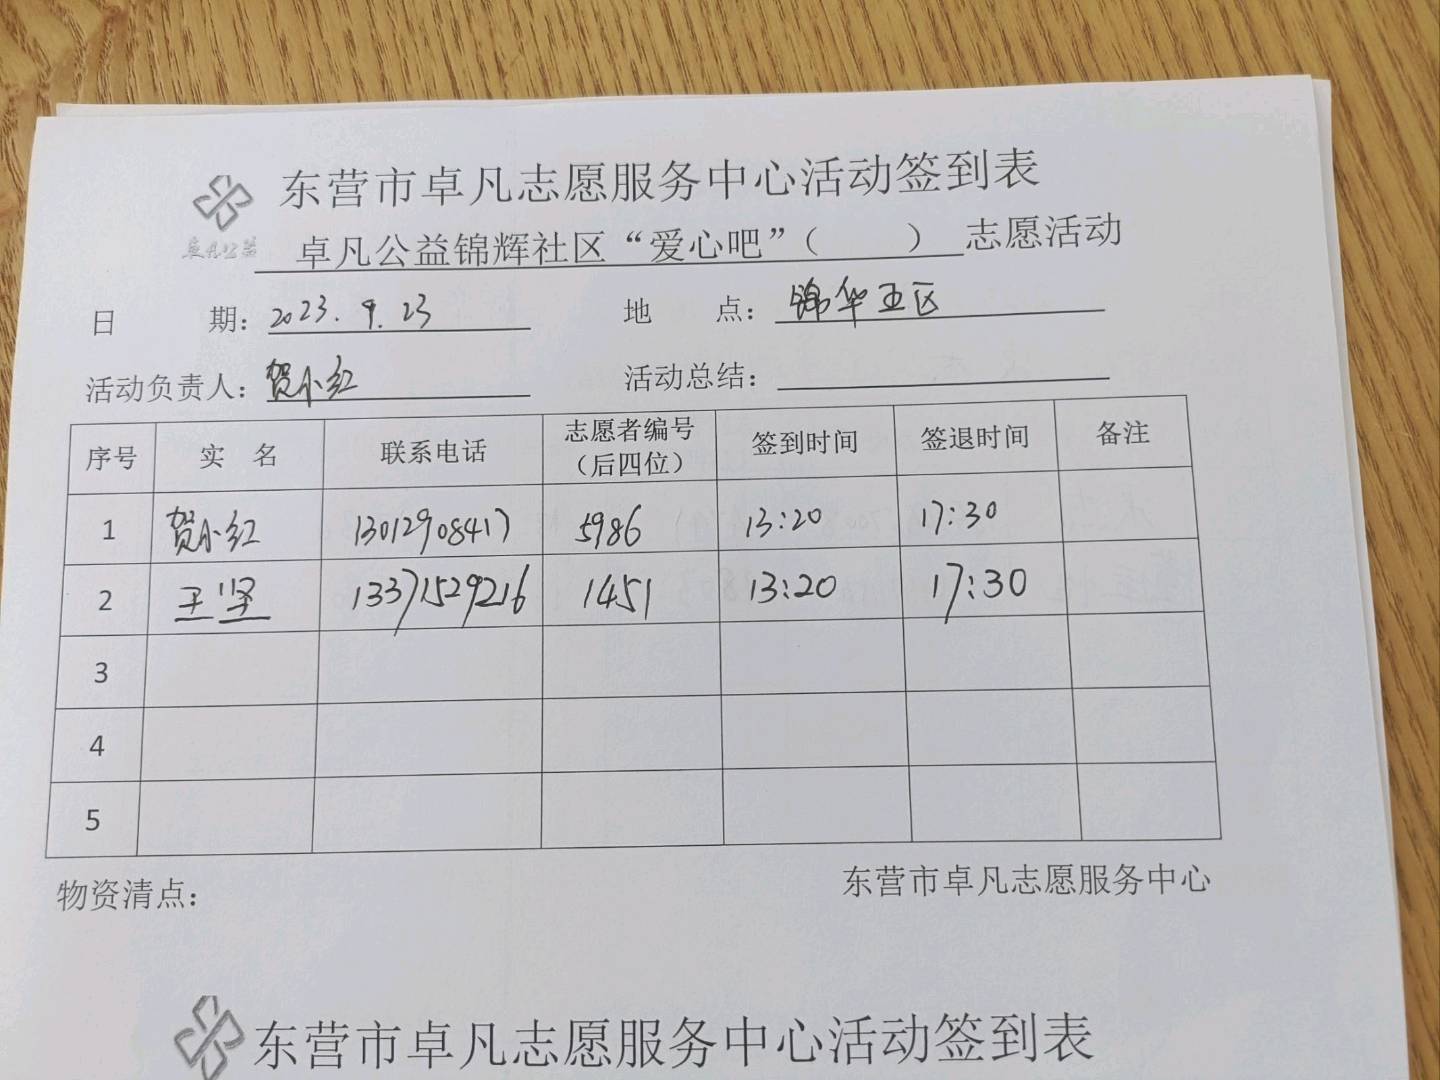 东营市卓凡志愿服务中心活动签到表
卓凡公益
卓凡公益锦辉社区“爱心吧”（ ）志愿活动
日 期：2023.9.23 地 点：锦华五区
活动负责人：贺小红 活动总结：
序号 实 名 联系电话 志愿者编号（后四位） 签到时间 签退时间 备注
1 贺小红 13012908417 5986 13:20 17:30
2 王坚 13371529216 1451 13:20 17:30
3
4
5
物资清点： 东营市卓凡志愿服务中心
东营市卓凡志愿服务中心活动签到表